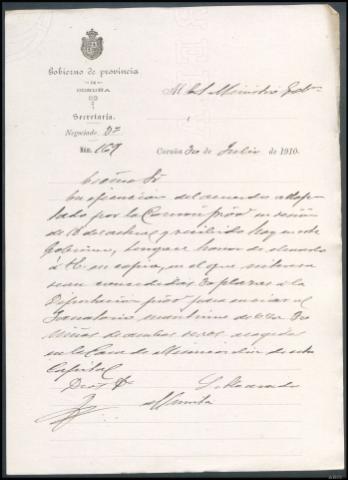 Gobierno de provincia
DE
CORUÑA
Secretaría.
Negociado 3º
Núm. 1627
Al Sr. Ministro Gobon.
Coruña 30 de Julio de 1910.
Excmo Sr
En ejecución del acuerdo adop
tado por la Comon. prov. en sesión
de 18 del actual y recibido hoy en este
Gobierno, tengo el honor de elevarlo
á V.E. en copia, en el que interesa
sean concedidas 30 plazas á la
Diputación prov. para enviar al
Sanatorio marítimo de Oza 30
Niños de ambos sexos acogidos
en la Casa de Misericordia de esta
Capital